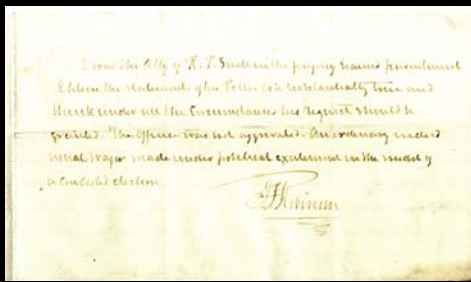 I was the Atty of R. P. Smith in the
I believe the statements of his Petition to be substantially true and
think under all the Circumstances his request should be
granted. The offence was not aggravated. An ordinary
wager made under political excitement in the midst of
a contested election